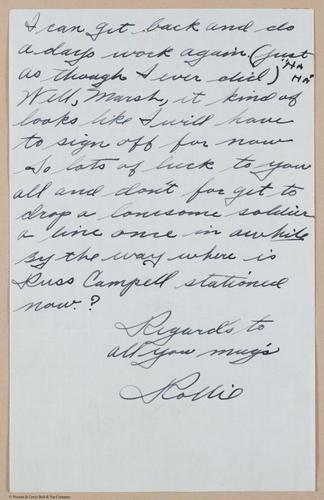 I can get back and do
a days work again (just
as though I ever did) "HA HA"
Well, Marsh, it kind of
looks like I will have
to sign off for now
So lots of luck to you
all and don't forget to
drop a lonesome soldier
a line once in awhile
By the way where is
Russ Campell stationed
now?
Regards to
all you mug's
Rollie